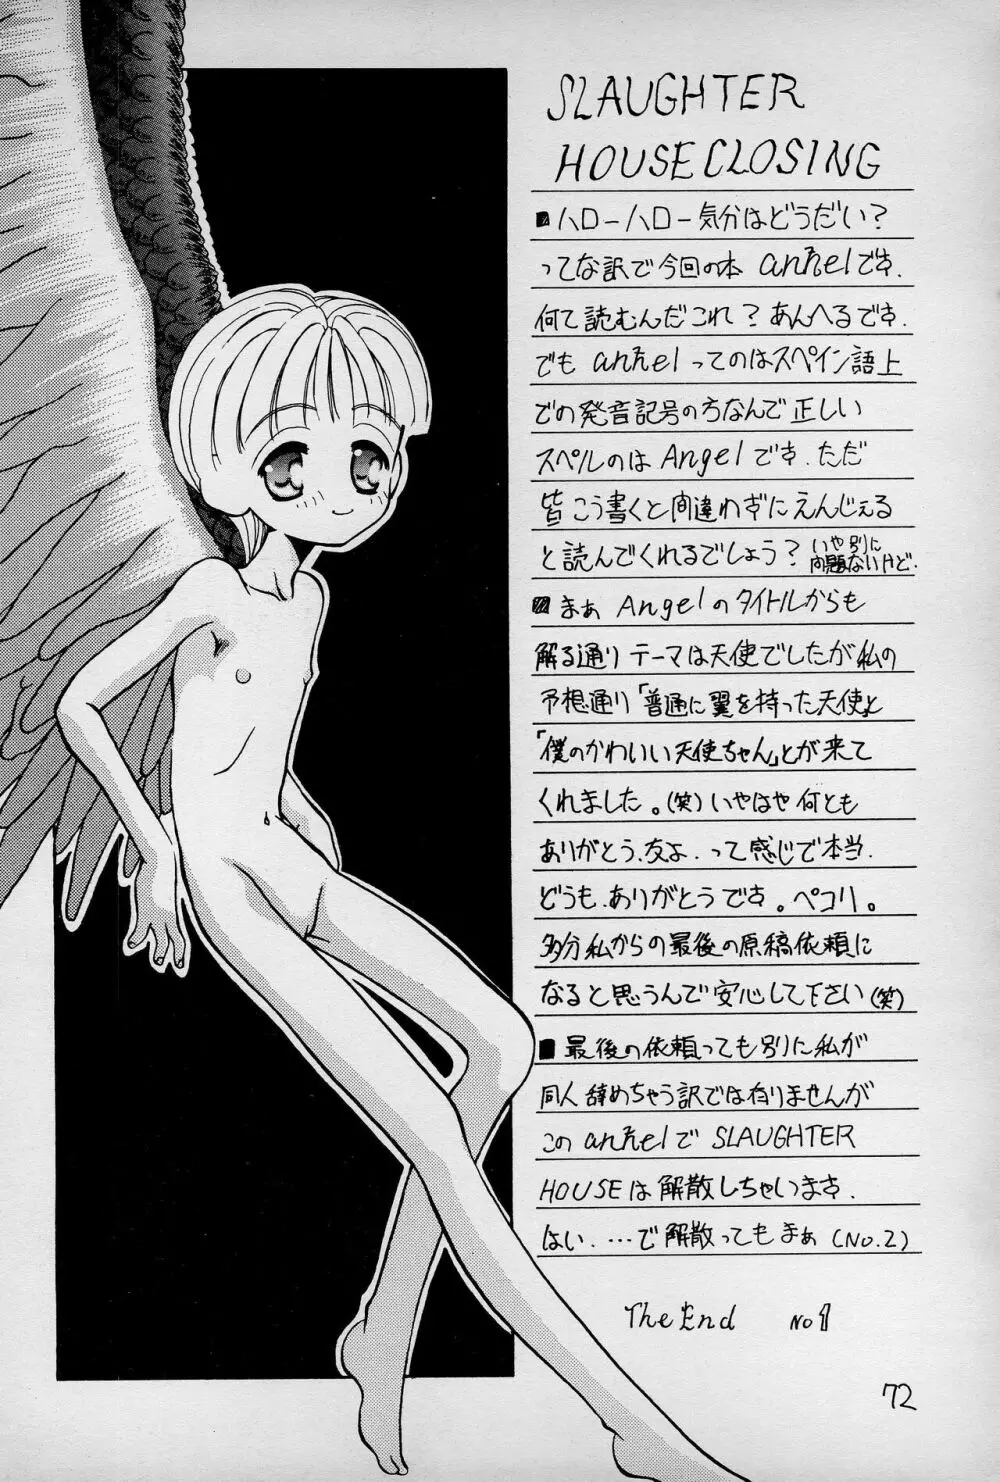 SLAUGHTER
HOUSE CLOSING
■ハローハロー気分はどうだい?
ってな訳で今回の本 anhelです.
何て読むんだこれ?あんへるです.
でも anhelってのはスペイン語上
での発音記号の方なんで正しい
スペルのは Angelです.ただ
皆こう書くと間違わずにえんじぇる
と読んでくれるでしょう?いや別に
問題ないけど.
■まぁ Angelのタイトルからも
解る通り テーマは天使でしたが私の
予想通り「普通に翼を持った天使」と
「僕のかわいい天使ちゃん」とが来て
くれました。(笑)いやはや何とも
ありがとう、友よ.って感じで本当.
どうも.ありがとうです。ペコリ。
多分私からの最後の原稿依頼に
なると思うんで安心して下さい(笑)
■最後の依頼っても別に私が
同人辞めちゃう訳では有りませんが
この anhelで SLAUGHTER
HOUSEは解散しちゃいます.
はい.…で解散ってもまぁ(No.2)
The End No 1
72